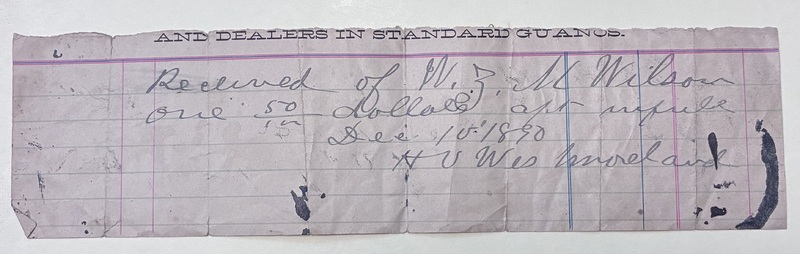 AND DEALERS IN STANDARD GUANOS.
Received of W. Z. M Wilson
one 50/100 Dollars
Dec 10 1890
H V Westmoreland